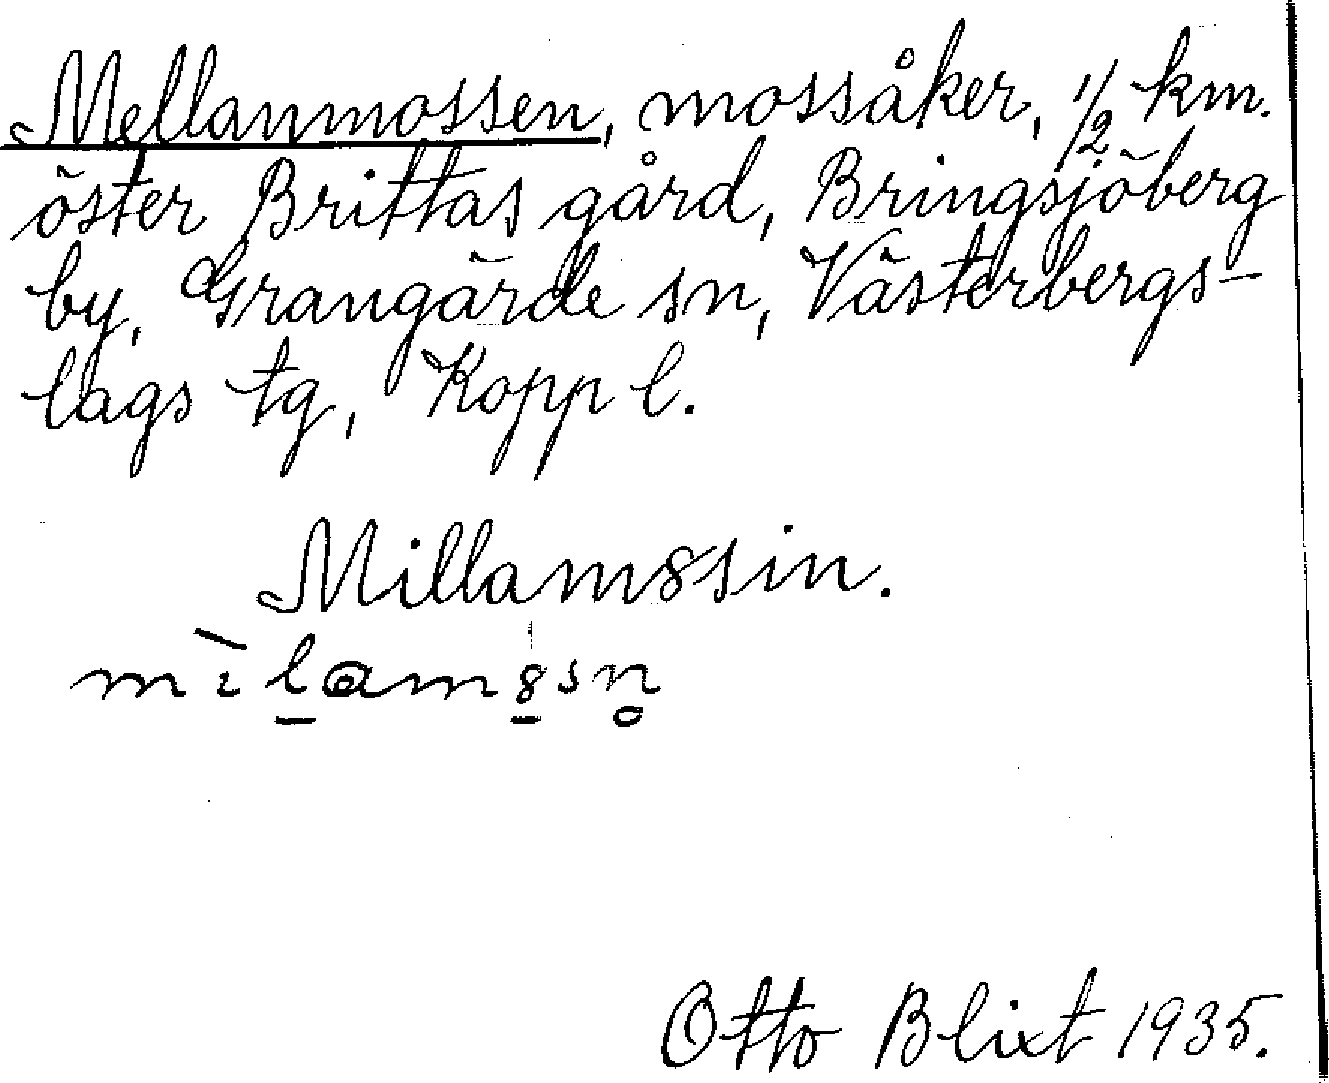 Mellanmossen, mossåker, 1/2 km.
öster Brittas gård, Bringsjöberg
by, Grangärde sn, Västerbergs-
lags tg, Kopp l.
Millam8sin.
mìl̠am8̠sn̥
Otto Blixt 1935.